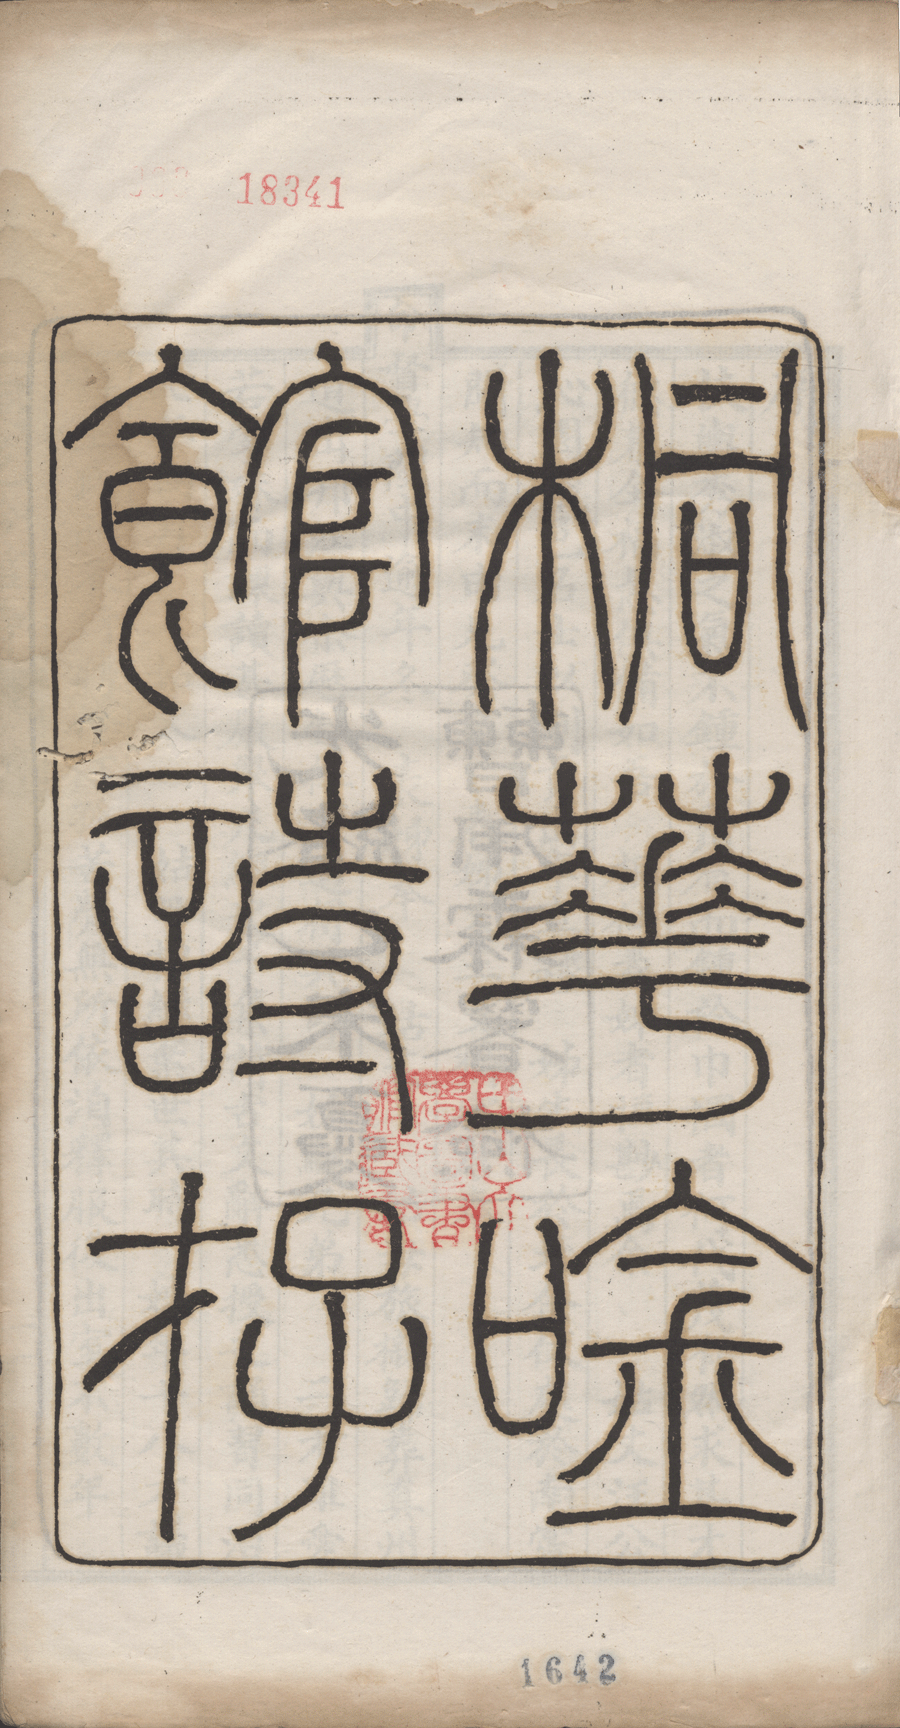 18341
桐華唫
館詩存
1642